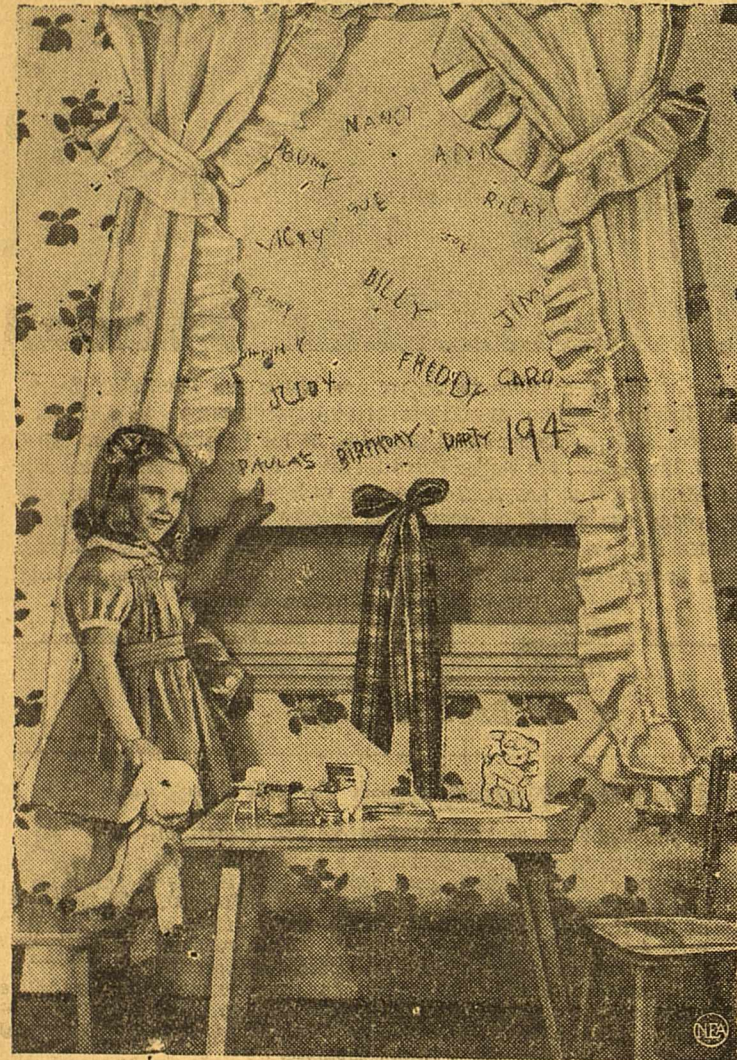 NANCY
BUNNY
ANN
SUE
RICKY
VICKY
JOE
BILLY
JIM
FREDDY
CARO
JUDY
PAULA'S BIRTHDAY PARTY 194
NEA